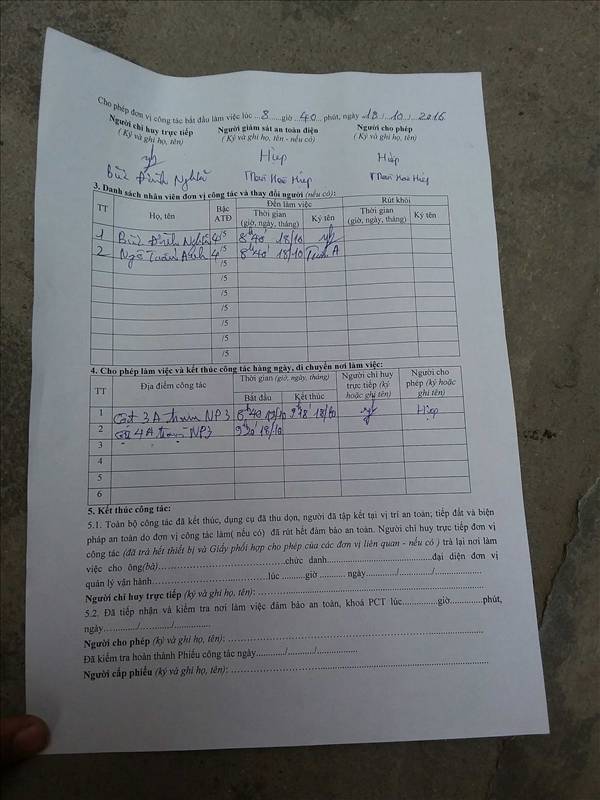 Cho phép đơn vị công tác bắt đầu làm việc lúc ..8......giờ ..40.. phút, ngày 18../..10../..2016
Người chỉ huy trực tiếp Người giám sát an toàn điện Người cho phép
( Ký và ghi họ, tên) ( Ký và ghi họ, tên - nếu có) ( Ký và ghi họ, tên)
Hiệp Hiệp
Bùi Đình Nghĩa Hiệp Hiệp
3. Danh sách nhân viên đơn vị công tác và thay đổi người (nếu có):
TT Họ, tên Bậc ATĐ Đến làm việc Rút khỏi
Thời gian (giờ, ngày, tháng) Ký tên Thời gian (giờ, ngày, tháng) Ký tên
1 Bùi Đình Nghĩa 4/5 8h40' 18/10
2 Ngô Tuấn Anh 4/5 8h40' 18/10 Tuấn A
/5
/5
/5
/5
/5
/5
/5
4. Cho phép làm việc và kết thúc công tác hàng ngày, di chuyển nơi làm việc:
TT Địa điểm công tác Thời gian (giờ, ngày, tháng) Người chỉ huy trực tiếp (ký hoặc ghi tên) Người cho phép (ký hoặc ghi tên)
Bắt đầu Kết thúc
1 Cột 3A trạm NP3 8h40 18/10 9h18' 18/10 Hiệp
2 Cột 4A trạm NP3 18/10
3
4
5
6
5. Kết thúc công tác:
5.1. Toàn bộ công tác đã kết thúc, dụng cụ đã thu dọn, người đã tập kết tại vị trí an toàn; tiếp đất và biện
pháp an toàn do đơn vị công tác làm( nếu có) đã rút hết đảm bảo an toàn. Người chỉ huy trực tiếp đơn vị
công tác (đã trả hết thiết bị và Giấy phối hợp cho phép của các đơn vị liên quan - nếu có ) trả lại nơi làm
việc cho ông(bà)................................chức danh................................đại diện đơn vị
quản lý vận hành................................lúc ........giờ ......... ngày........../........../...............
Người chỉ huy trực tiếp (ký và ghi họ, tên): ................................
5.2. Đã tiếp nhận và kiểm tra nơi làm việc đảm bảo an toàn, khoá PCT lúc............giờ............phút,
ngày........../........../.............
Người cho phép (ký và ghi họ, tên): ................................
Đã kiểm tra hoàn thành Phiếu công tác ngày........../........../.............
Người cấp phiếu (ký và ghi họ, tên): ................................